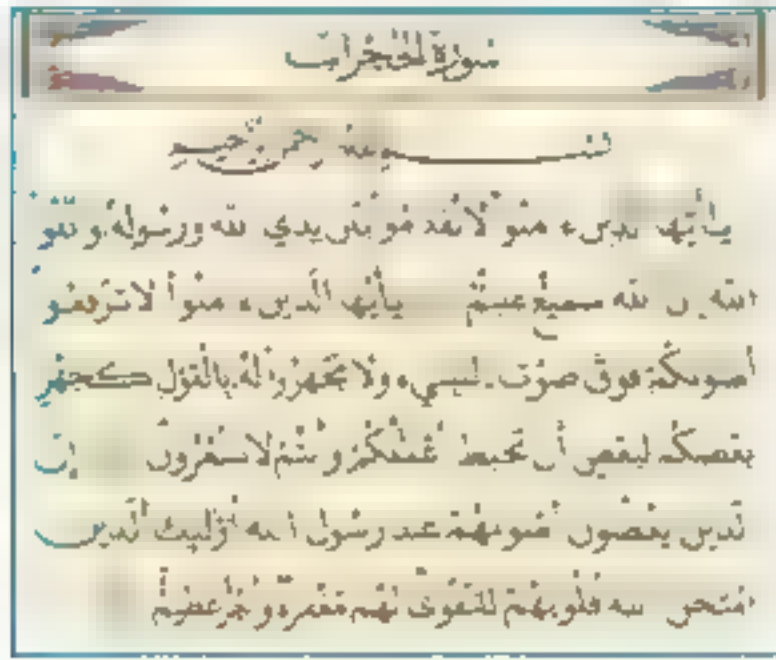 سورة الحجرات
بسم الله الرحمن الرحيم
يا أيها الذين ءامنوا لا تقدموا بين يدي الله ورسوله واتقوا
الله إن الله سميع عليم يا أيها الذين ءامنوا لا ترفعوا
أصواتكم فوق صوت النبي ولا تجهروا له بالقول كجهر
بعضكم لبعض أن تحبط أعمالكم وأنتم لا تشعرون إن
الذين يغضون أصواتهم عند رسول الله أولئك الذين
امتحن الله قلوبهم للتقوى لهم مغفرة وأجر عظيم